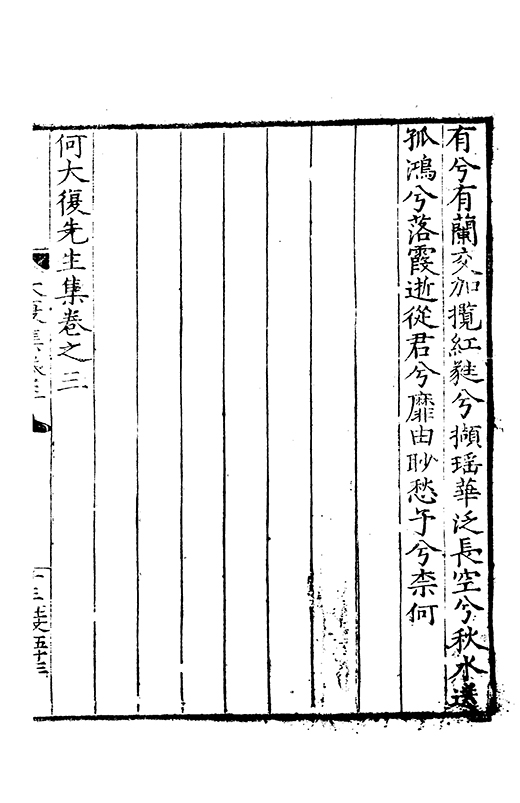 有兮有蘭交加攬紅蕤兮擷瑶華泛長空兮秋水送
孤鴻兮落霞逝從君兮靡由眇愁予兮柰何
何大復先生集卷之三